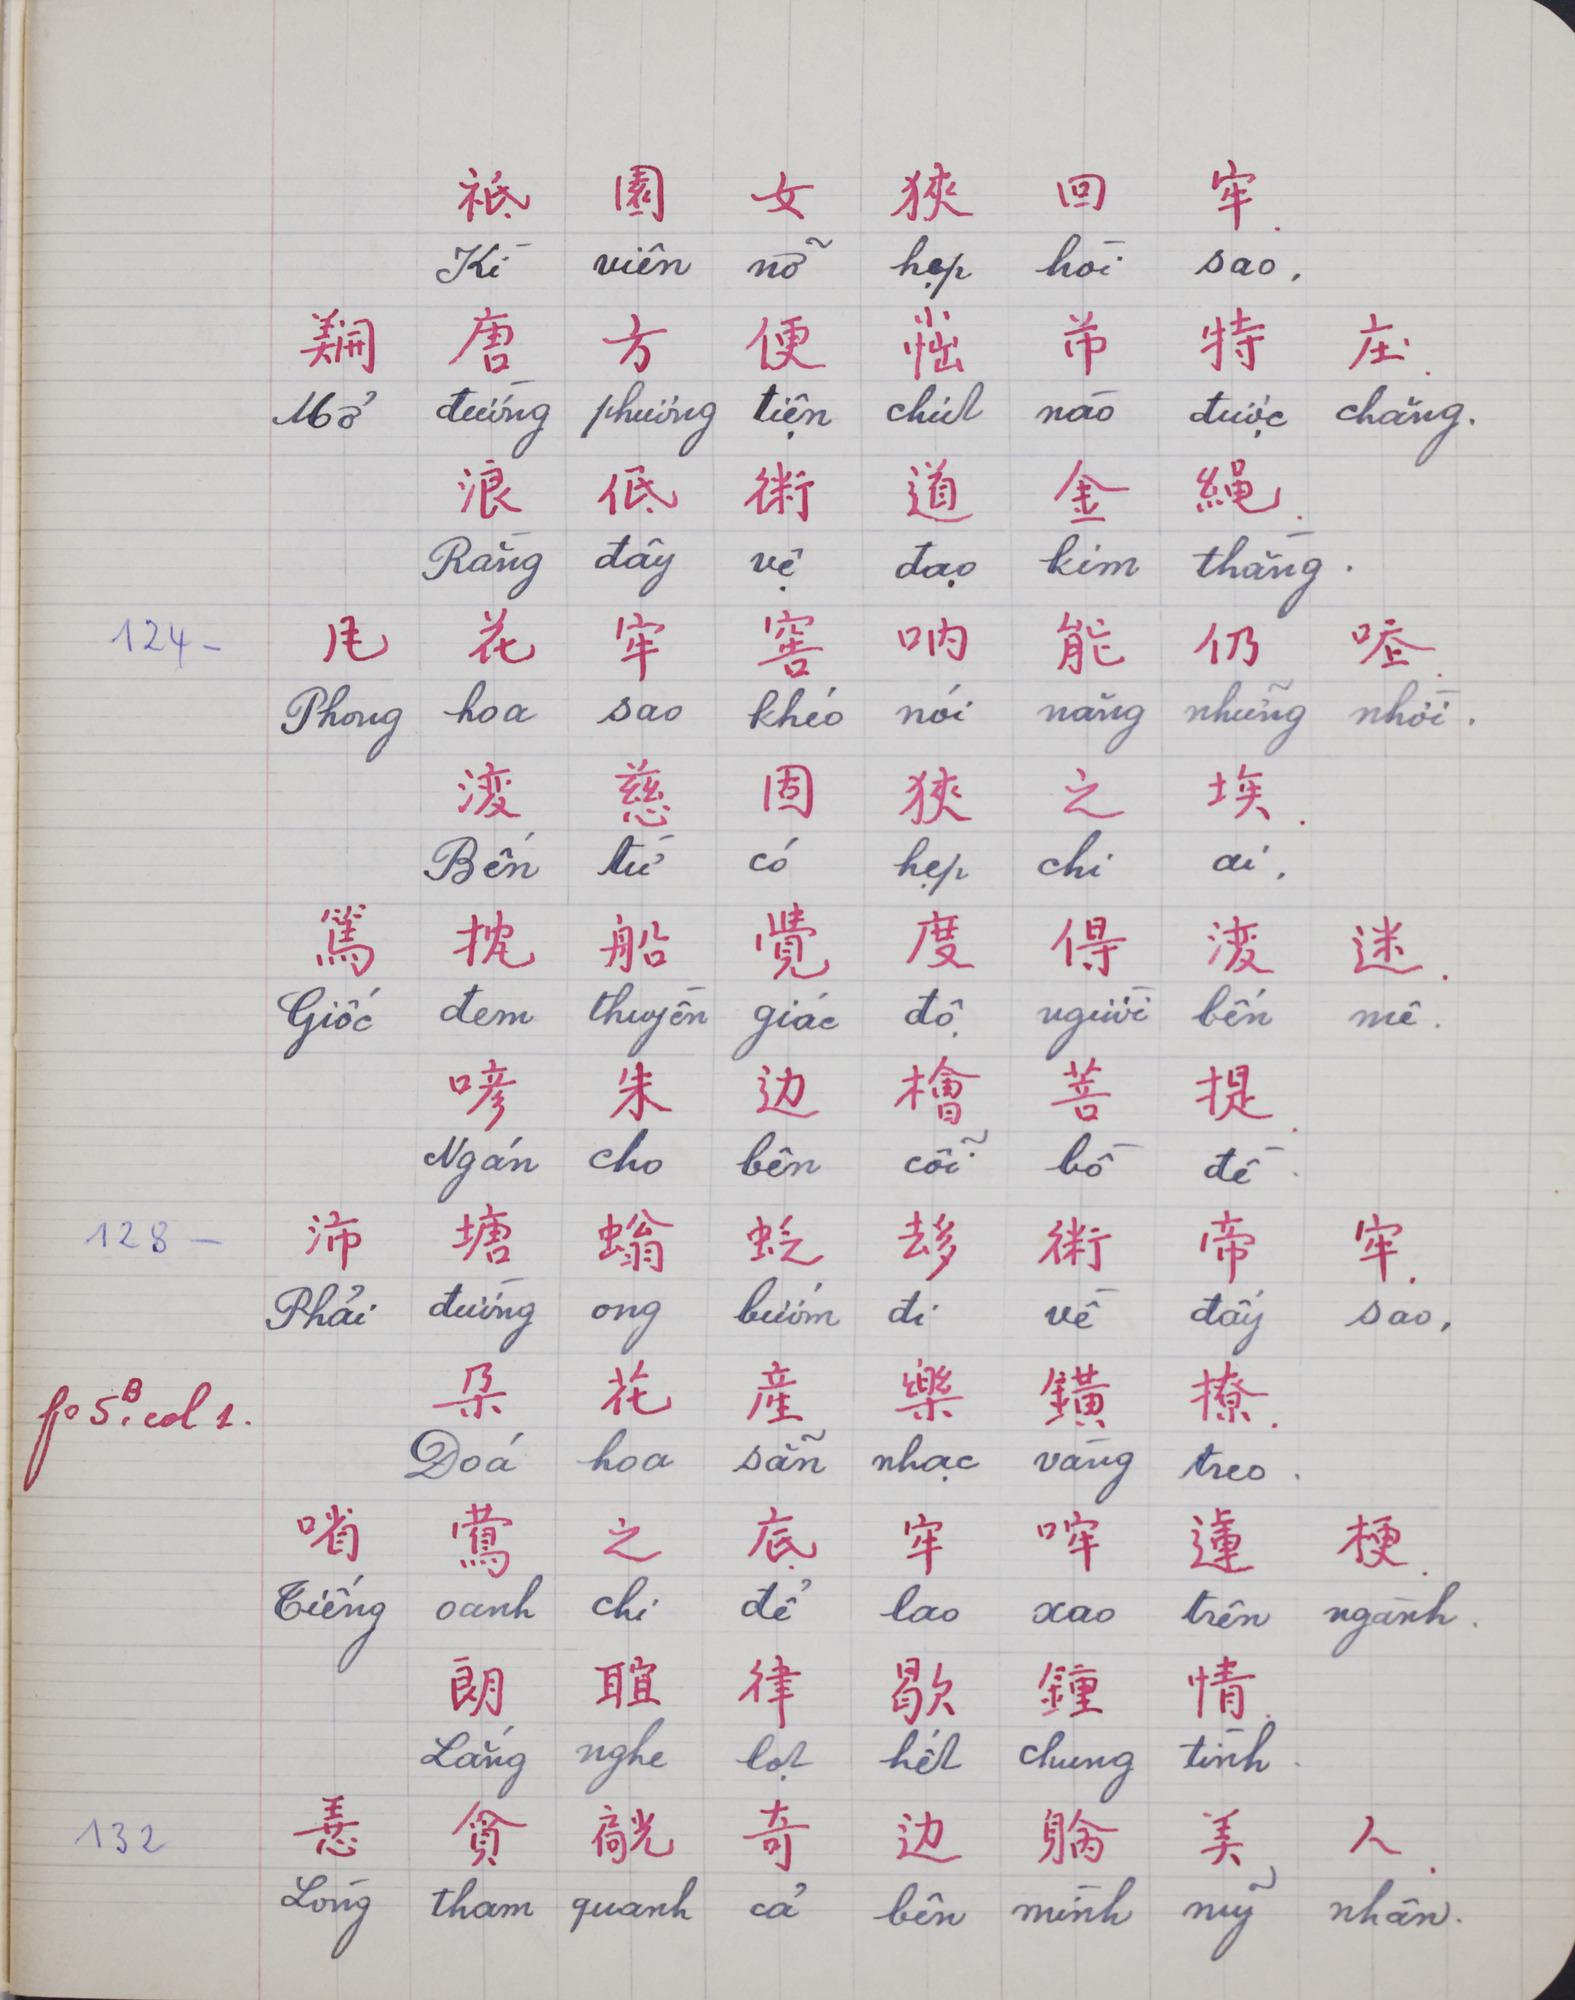 祗 園 女 狹 回 牢.
Kì viên nỡ hẹp hòi sao,
𫘑 唐 方 便 𡭧 芇 特 庄.
Mở đường phương tiện chút nào được chăng.
浪 低 術 道 金 繩.
Rằng đây vệ đạo kim thằng.
124- 凨 花 牢 窖 吶 能 仍 𠴍.
Phong hoa sao khéo nói năng những nhời.
渡 慈 固 狹 之 埃.
Bến từ có hẹp chi ai,
篤 抌 船 覺 度 得 渡 迷.
Giốc đem thuyền giác độ người bến mê.
喭 朱 边 檜 菩 提.
Ngán cho bên cỗi bồ đề.
128- 沛 塘 螉 𧊉 𠫾 術 帝 牢.
Phải đường ong bướm đi về đấy sao,
fo 5.B col 1. 朶 花 產 樂 鐄 撩.
Đoá hoa sẵn nhạc vàng treo.
㗂 鶯 之 底 牢 哰 蓮 梗.
Tiếng oanh chi để lao xao trên ngành.
朗 聇 律 歇 鍾 情.
Lắng nghe lọt hết chung tình.
132 𢚸 貪 𨒺 奇 边 𨉓 美 人.
Lòng tham quanh cả bên mình mỹ nhân.